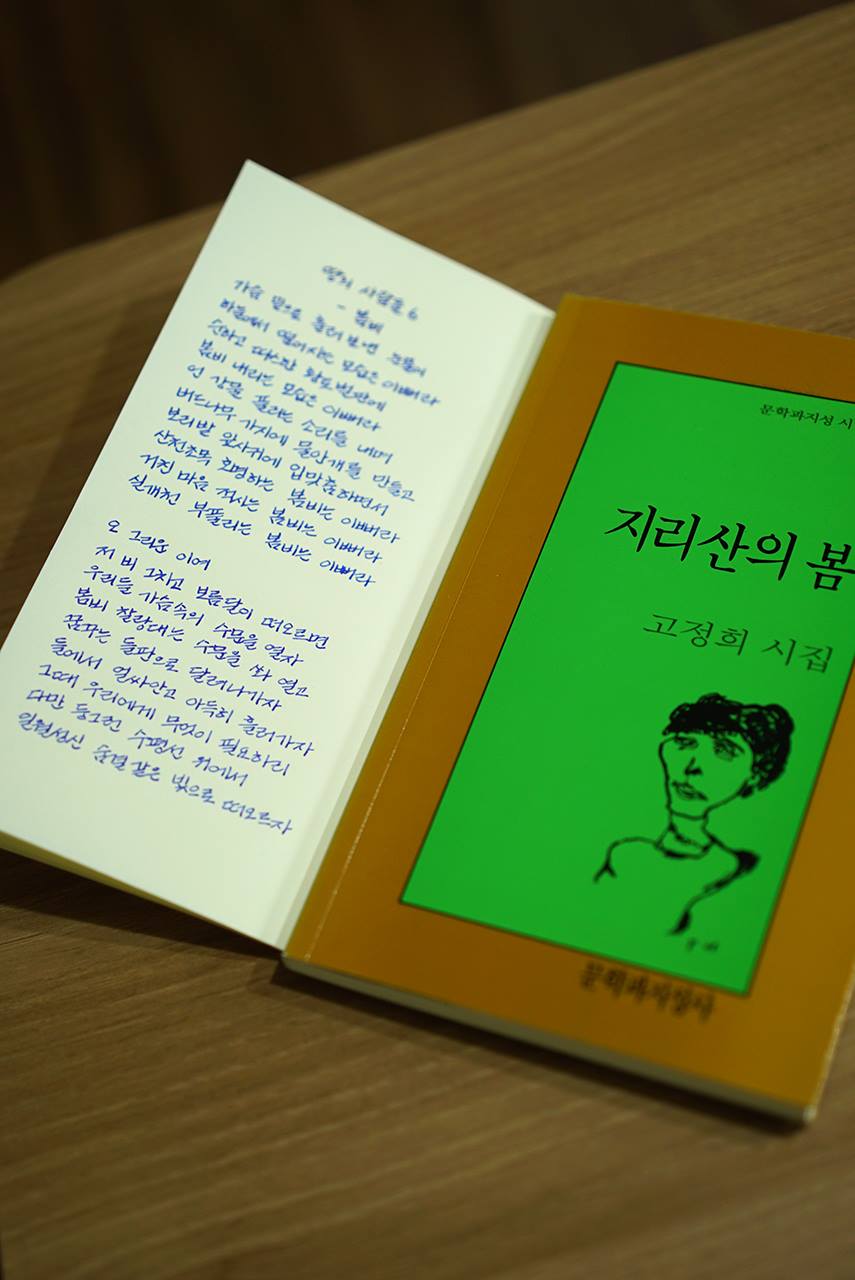 땅의 사람들 6
- 봄비
가슴 밑으로 흘러보낸 눈물이
하늘에서 떨어지는 모습은 이뻐라
순하고 따스한 황토 벌판에
봄비 내리는 모습은 이뻐라
언 강물 풀리는 소리를 내며
버드나무 가지에 물안개를 만들고
보리밭 잎사귀에 입맞춤하면서
산천초목 호명하는 봄비는 이뻐라
거친 마음 적시는 봄비는 이뻐라
실개천 부풀리는 봄비는 이뻐라
오 그리운 이여
저 비 그치고 보름달이 떠오르면
우리들 가슴속의 수문을 열자
봄비 찰랑대는 수문을 쏴 열고
꿈꾸는 들판으로 달려나가자
들에서 얼싸안고 아득히 흘러가자
그때 우리에게 무엇이 필요하리
다만 둥그런 수평선 위에서
일월성신 숨결같은 빛으로 떠오르자
문학과지성 시
지리산의 봄
고정희 시집
문학과지성사